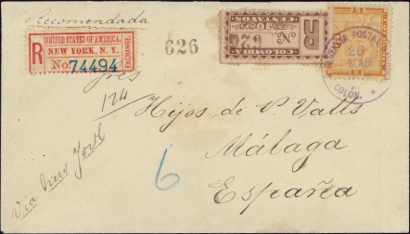 Recomendada
R
UNITED STATES OF AMERICA.
NEW YORK, N. Y.
EXCHANGE
No. 74494
626
COLOMBIA
CENTAVOS
R
No. 628
AGENCIA POSTAL
26
MAR
COLON.
124
Hijos de P. Valls
Málaga
España
6
Via New York